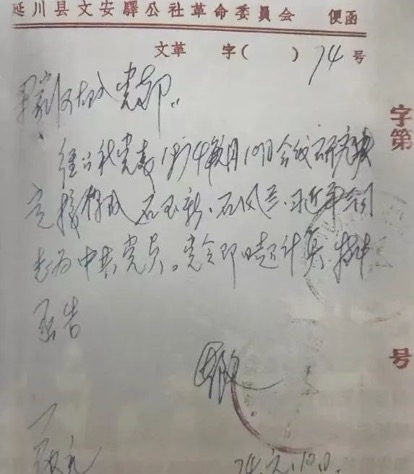 延川县文安驛公社革命委員会 便函
文革 字( ) 74 号
家河大队党部:
经公社党委1974年 月10日会议研究决
定接收 石玉新、石风兰、习近平 同
志为中共党员。党令即日起计算。特此
函告
字第
号
74.元.10日